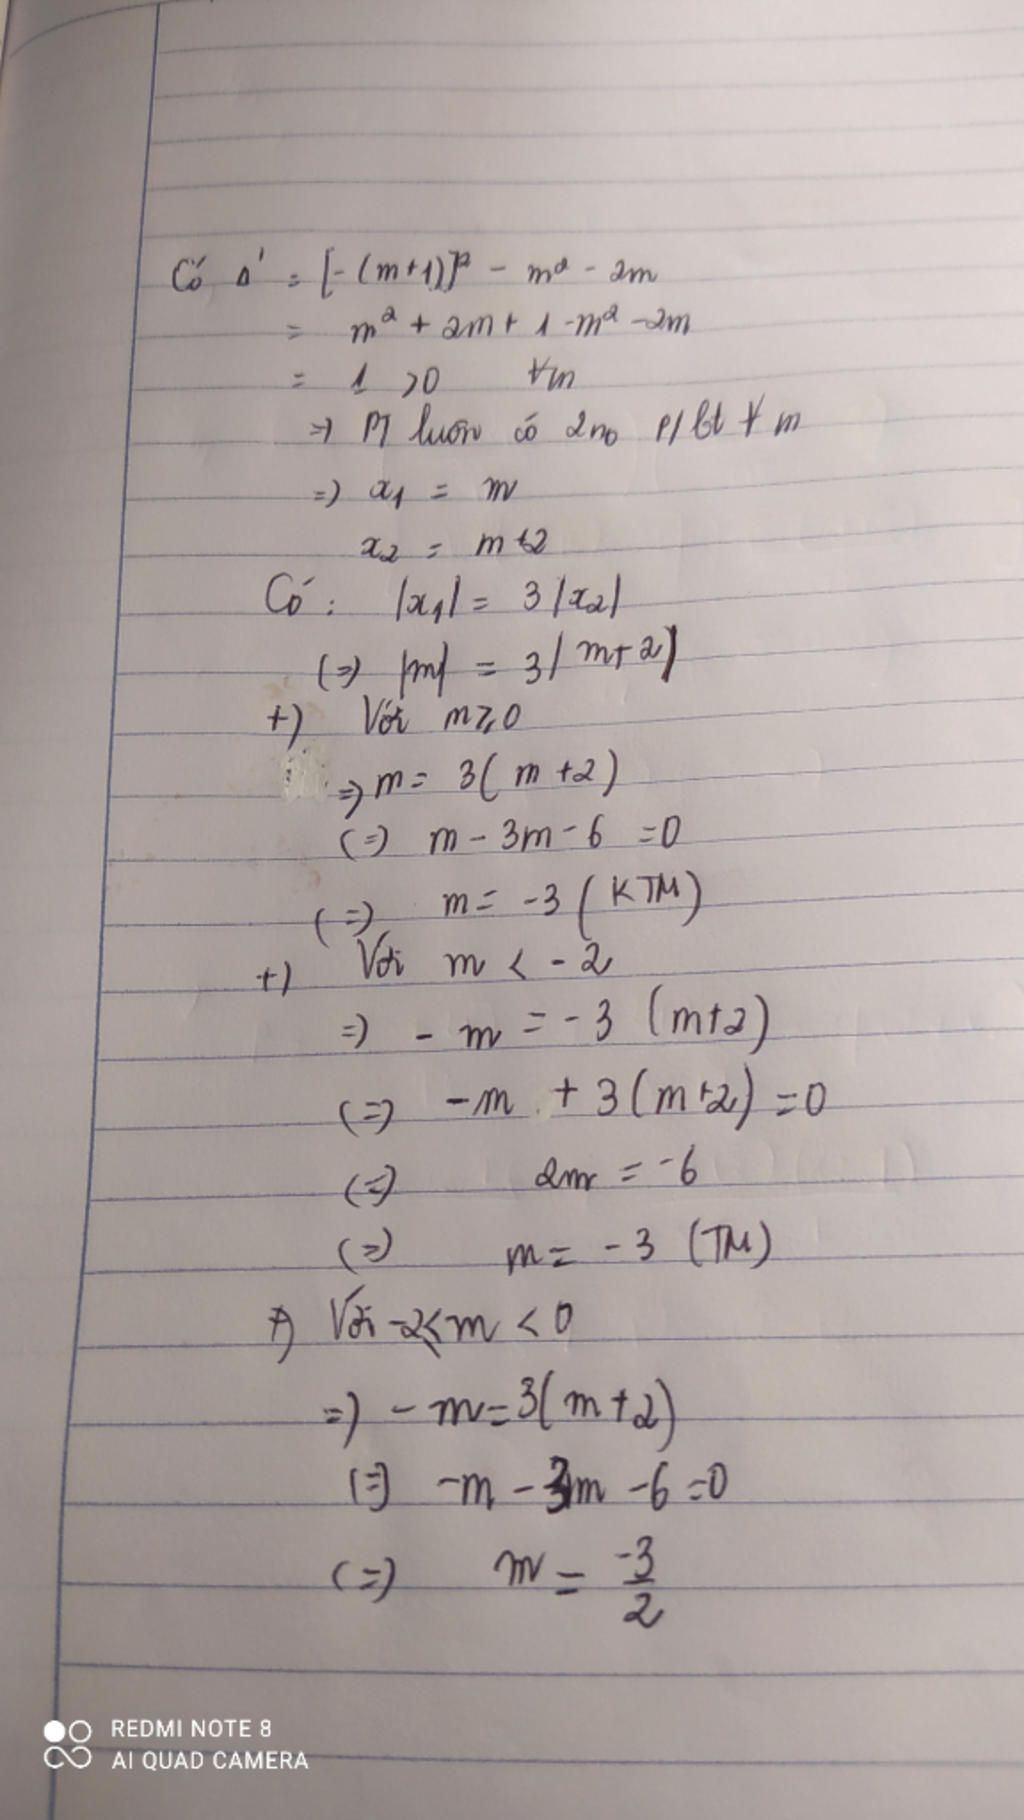 Có Δ' = [-(m+1)]² - m² - 2m
= m² + 2m + 1 - m² - 2m
= 1 >0 ∀m
=> PT luôn có 2n₀ p/bt ∀ m
=) x₁ = m
x₂ = m+2
Có: |x₁| = 3|x₂|
(=) |m| = 3|m+2|
+) Với m≥0
=) m = 3(m+2)
(=) m - 3m - 6 = 0
(=) m = -3 (KTM)
+) Với m < -2
=) -m = -3 (m+2)
(=) -m + 3(m+2) = 0
(=) 2m = -6
(=) m = -3 (TM)
+) Với -2≤m < 0
=) -m = 3(m+2)
(=) -m - 3m - 6 = 0
(=) m = -3/2
REDMI NOTE 8
AI QUAD CAMERA